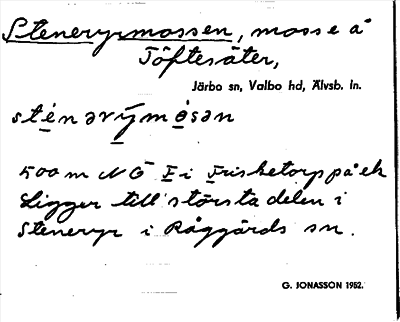 Steneryrmossen, mosse å
Töftesäter,
Järbo sn, Valbo hd, Älvsb. ln.
sténərȳmósən
500 m NÖ I i Frisketorp på ek
Ligger till största delen i
Steneryr i Råggärds sn.
G. JONASSON 1952.